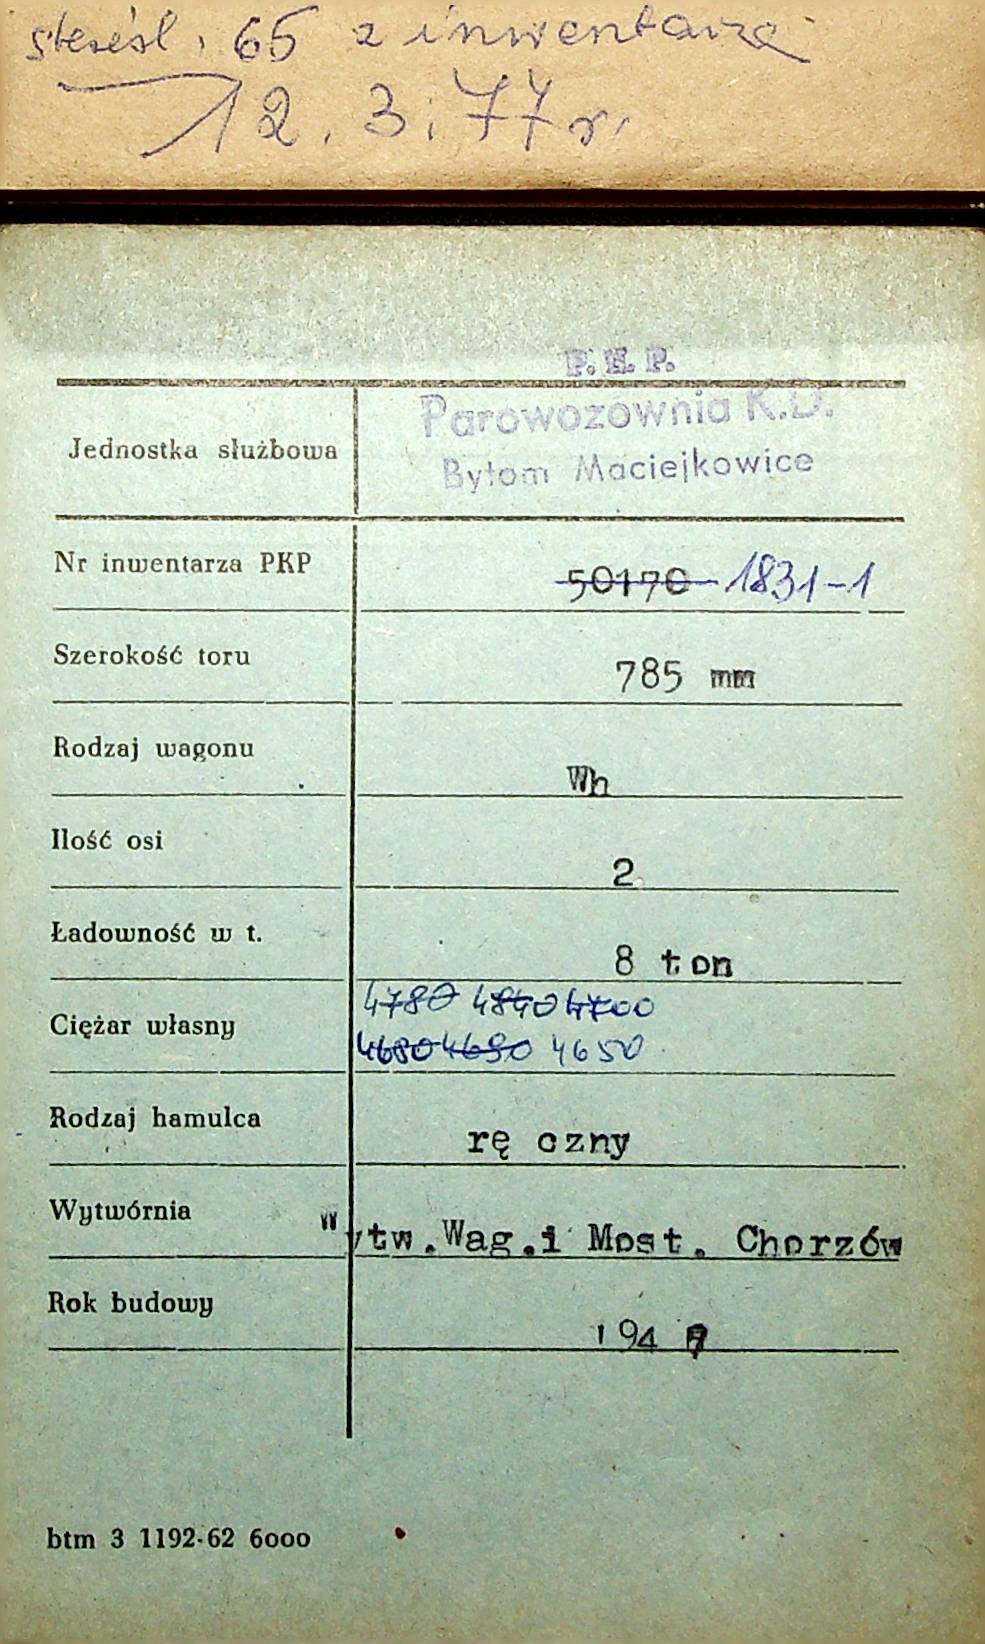 65 z inwentarza
12.3.77 r.
P. K. P.
Parowozownia K.D.
Bytom Maciejkowice
Jednostka służbowa
Nr inwentarza PKP 50170 1831-1
Szerokość toru 785 mm
Rodzaj wagonu Wh
Ilość osi 2
Ładowność w t. 8 ton
4780 4840 4700
Ciężar własny
4680 4690 4650
Rodzaj hamulca rę czny
Wytwórnia Wytw.Wag.i Most. Chorzów
Rok budowy 194
btm 3 1192-62 6000